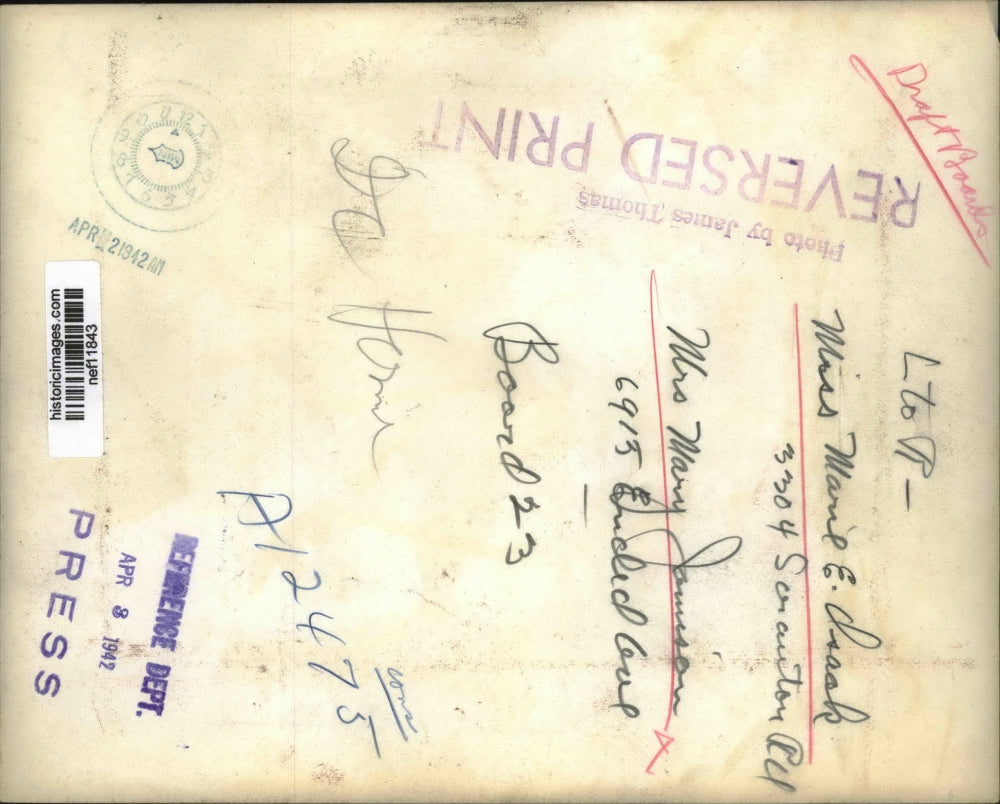 Draft Boards
REVERSED PRINT
Photo by James Thomas
L to R -
Miss Marie E. Isaak
3304 Scranton Rd
Mrs Mary Jamieson
6915 Euclid Ave
Board 23
A124735
REFERENCE DEPT.
APR 8 1942
PRESS
APR 2 1942 AM
historicimages.com
nef11843